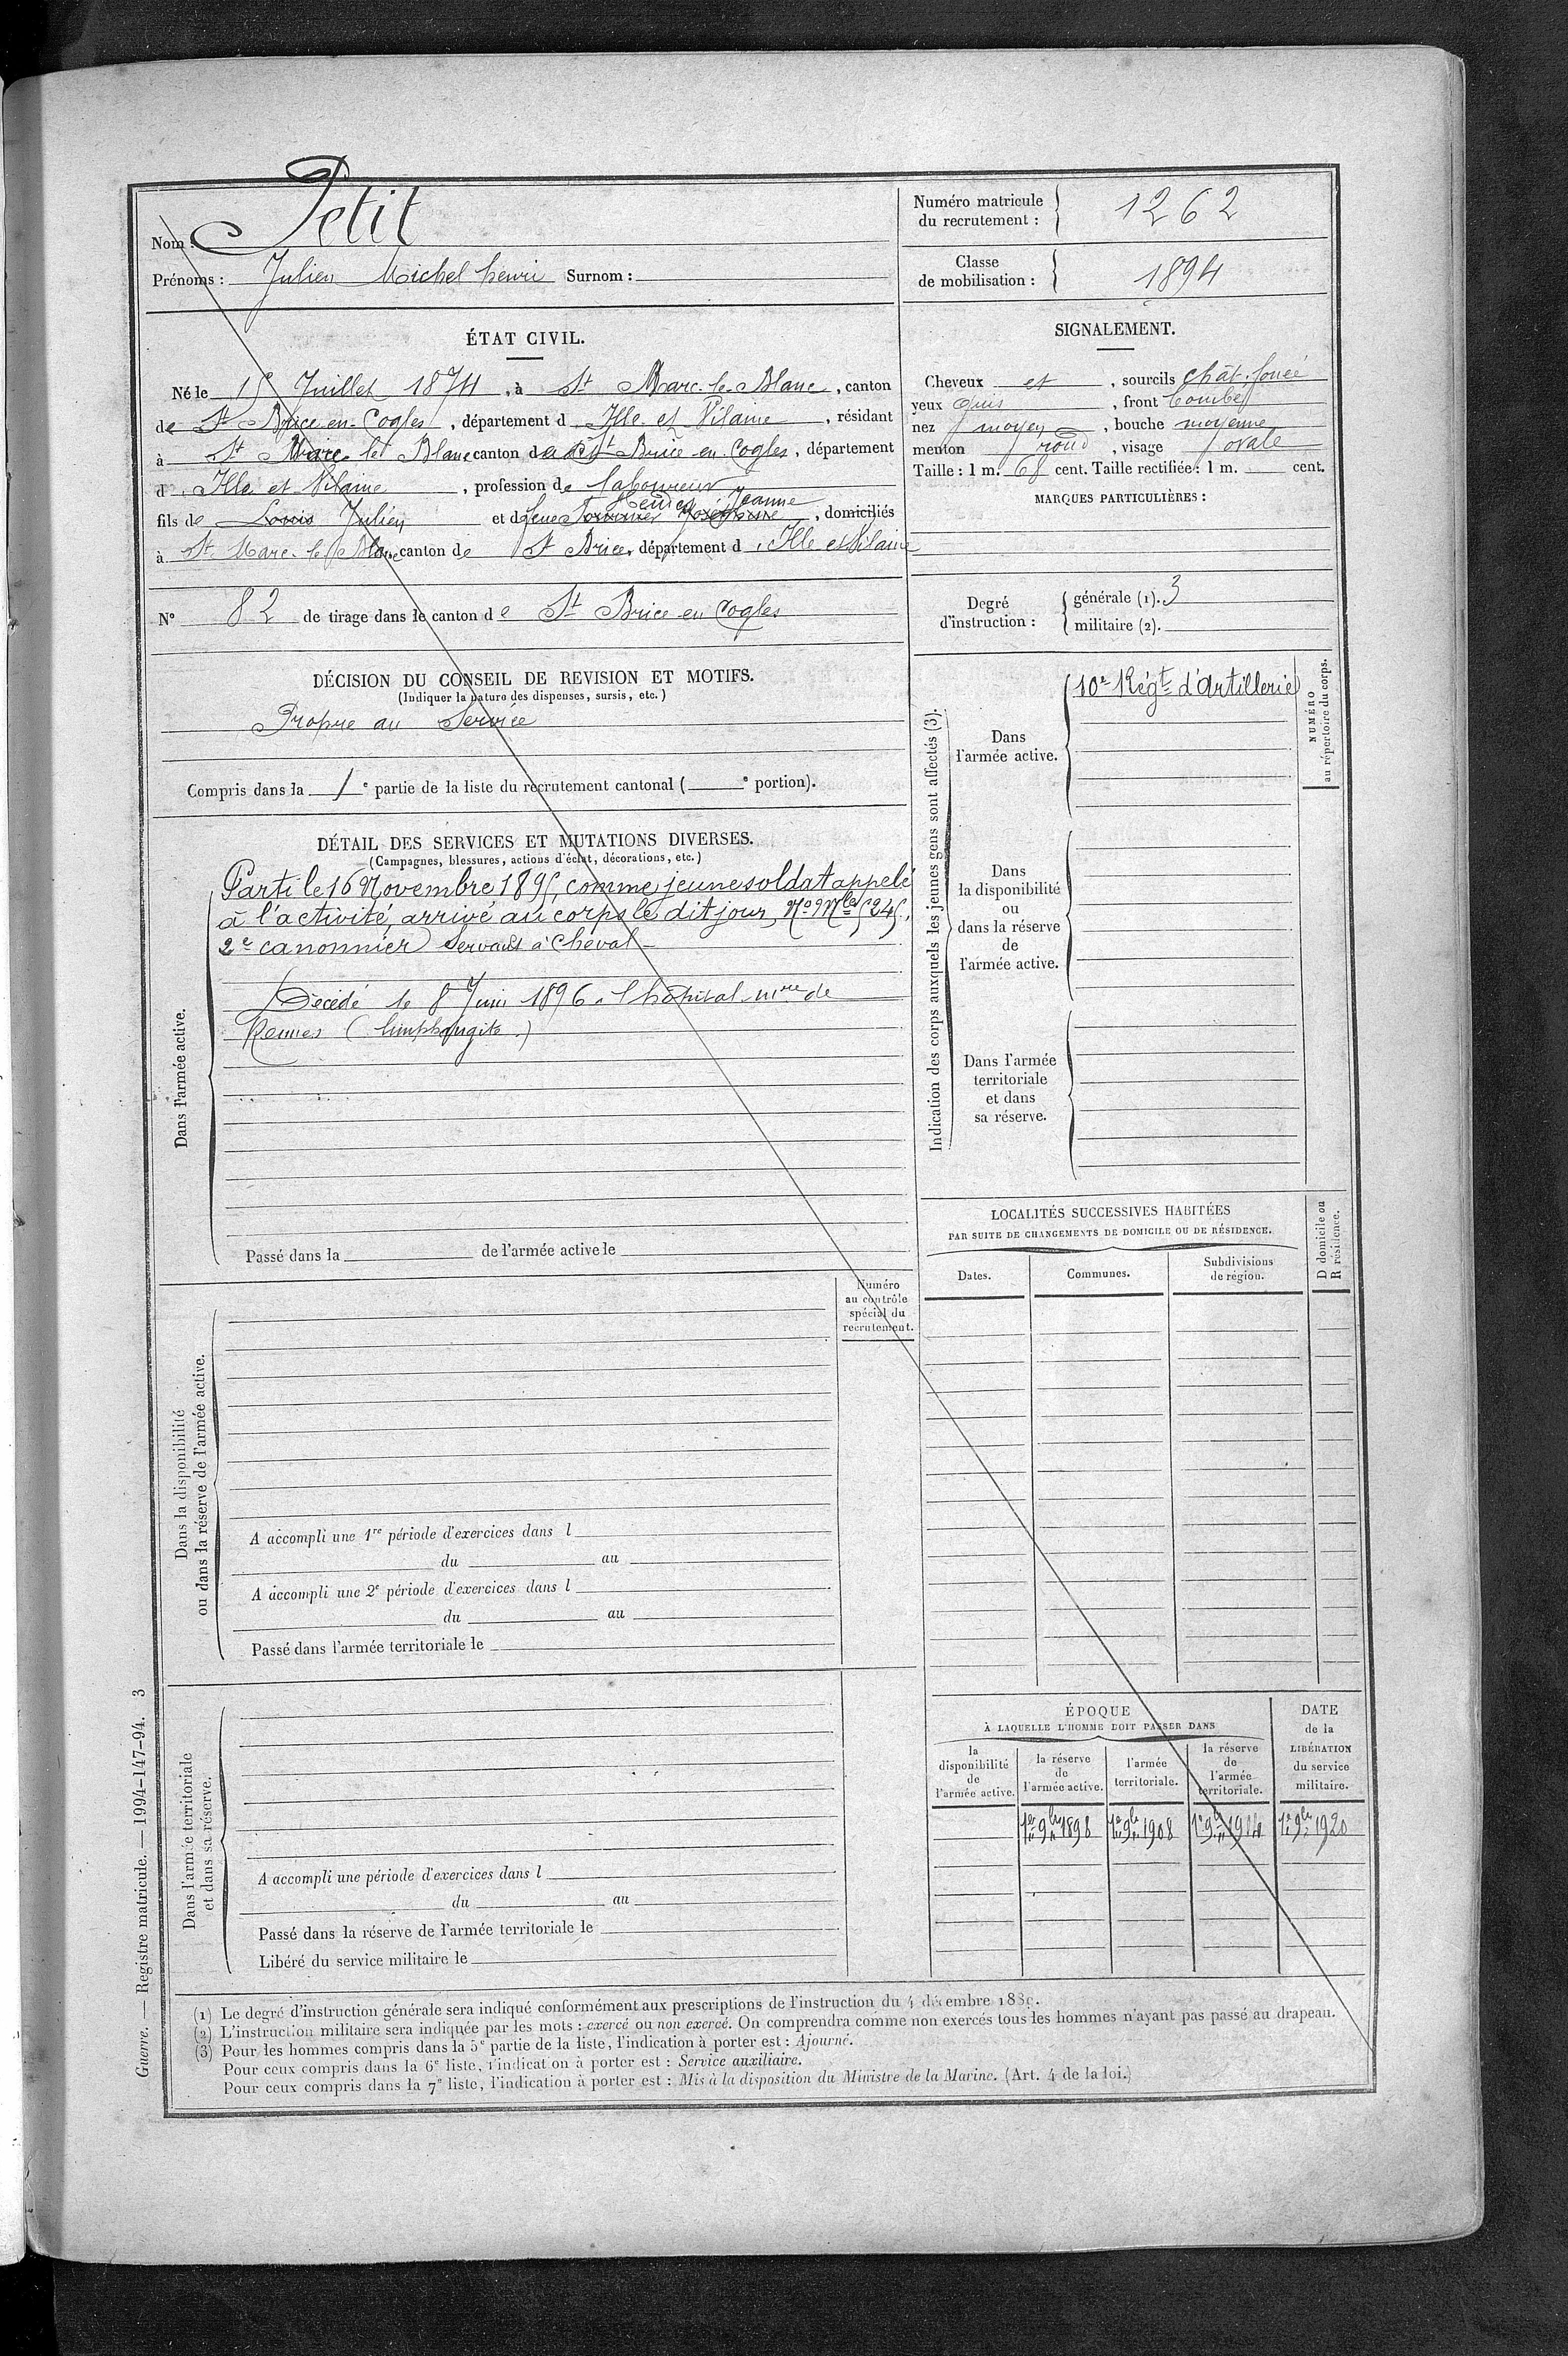 Nom : Petit
Prénoms : Julien Michel henri Surnom :
Numéro matricule du recrutement : 1262
Classe de mobilisation : 1894
ÉTAT CIVIL.
Né le 15 Juillet 1874, à St Marc-le-Blanc, canton
de St Brice-en-Cogles, département d Ille et Vilaine, résidant
à St Marc le Blanc canton de St Brice en Cogles, département
d Ille et Vilaine, profession de laboureur
Jeanne
fils de Louis Julien et d feue, domiciliés
à St Marc le Blanc canton de St Brice, département d Ille et Vilaine
N° 82 de tirage dans le canton de St Brice en Cogles
SIGNALEMENT.
Cheveux et, sourcils chât. foncé
yeux Gris, front bombé
nez moyen, bouche moyenne
menton rond, visage ovale
Taille : 1 m. 68 cent. Taille rectifiée : 1 m. cent.
MARQUES PARTICULIÈRES :
Degré d'instruction : générale (1). 3
militaire (2).
DÉCISION DU CONSEIL DE REVISION ET MOTIFS.
(Indiquer la nature des dispenses, sursis, etc.)
Propre au Service
Compris dans la 1e partie de la liste du recrutement cantonal ( e portion).
DÉTAIL DES SERVICES ET MUTATIONS DIVERSES.
(Campagnes, blessures, actions d'éclat, décorations, etc.)
Dans l'armée active.
Parti le 16 Novembre 1895, comme jeune soldat appelé
à l'activité, arrivé au corps le dit jour, No Mle 5245.
2e canonnier Servant à Cheval
Décédé le 8 Juin 1896 à l'hôpital mre de
Rennes (limphangite.)
Passé dans la de l'armée active le
Indication des corps auxquels les jeunes gens sont affectés (3).
Dans
l'armée active.
10e Régt d'Artillerie
NUMÉRO
au répertoire du corps.
Dans
la disponibilité
ou
dans la réserve
de
l'armée active.
Dans l'armée
territoriale
et dans
sa réserve.
LOCALITÉS SUCCESSIVES HABITÉES
PAR SUITE DE CHANGEMENTS DE DOMICILE OU DE RÉSIDENCE.
Dates. Communes. Subdivisions de région.
D domicile ou
R résidence.
Numéro
au contrôle
spécial du
recrutement.
Dans la disponibilité
ou dans la réserve de l'armée active.
A accompli une 1re période d'exercices dans l
du au
A accompli une 2e période d'exercices dans l
du au
Passé dans l'armée territoriale le
Dans l'armée territoriale
et dans sa réserve.
A accompli une période d'exercices dans l
du au
Passé dans la réserve de l'armée territoriale le
Libéré du service militaire le
ÉPOQUE
À LAQUELLE L'HOMME DOIT PASSER DANS
la disponibilité de l'armée active.
la réserve de l'armée active.
l'armée territoriale.
la réserve de l'armée territoriale.
DATE de la LIBÉRATION du service militaire.
1er 9bre 1898 1er 9bre 1908 1er 9bre 1914 1er 9bre 1920
(1) Le degré d'instruction générale sera indiqué conformément aux prescriptions de l'instruction du 4 décembre 1889.
(2) L'instruction militaire sera indiquée par les mots : exercé ou non exercé. On comprendra comme non exercés tous les hommes n'ayant pas passé au drapeau.
(3) Pour les hommes compris dans la 5e partie de la liste, l'indication à porter est : Ajourné.
Pour ceux compris dans la 6e liste, l'indication à porter est : Service auxiliaire.
Pour ceux compris dans la 7e liste, l'indication à porter est : Mis à la disposition du Ministre de la Marine. (Art. 4 de la loi.)
Guerre. — Registre matricule. — 1994-147-94. 3